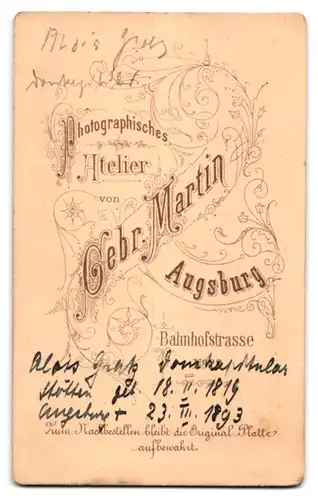 Alois Gratz
Domkapitular
Photographisches
Atelier
von
Gebr. Martin
Augsburg
Bahnhofstrasse
Alois Gratz Domkapitular
geb. 18. II. 1819
Augsburg + 23. III. 1893
Zum Nachbestellen bleibt die Original-Platte
aufbewahrt.